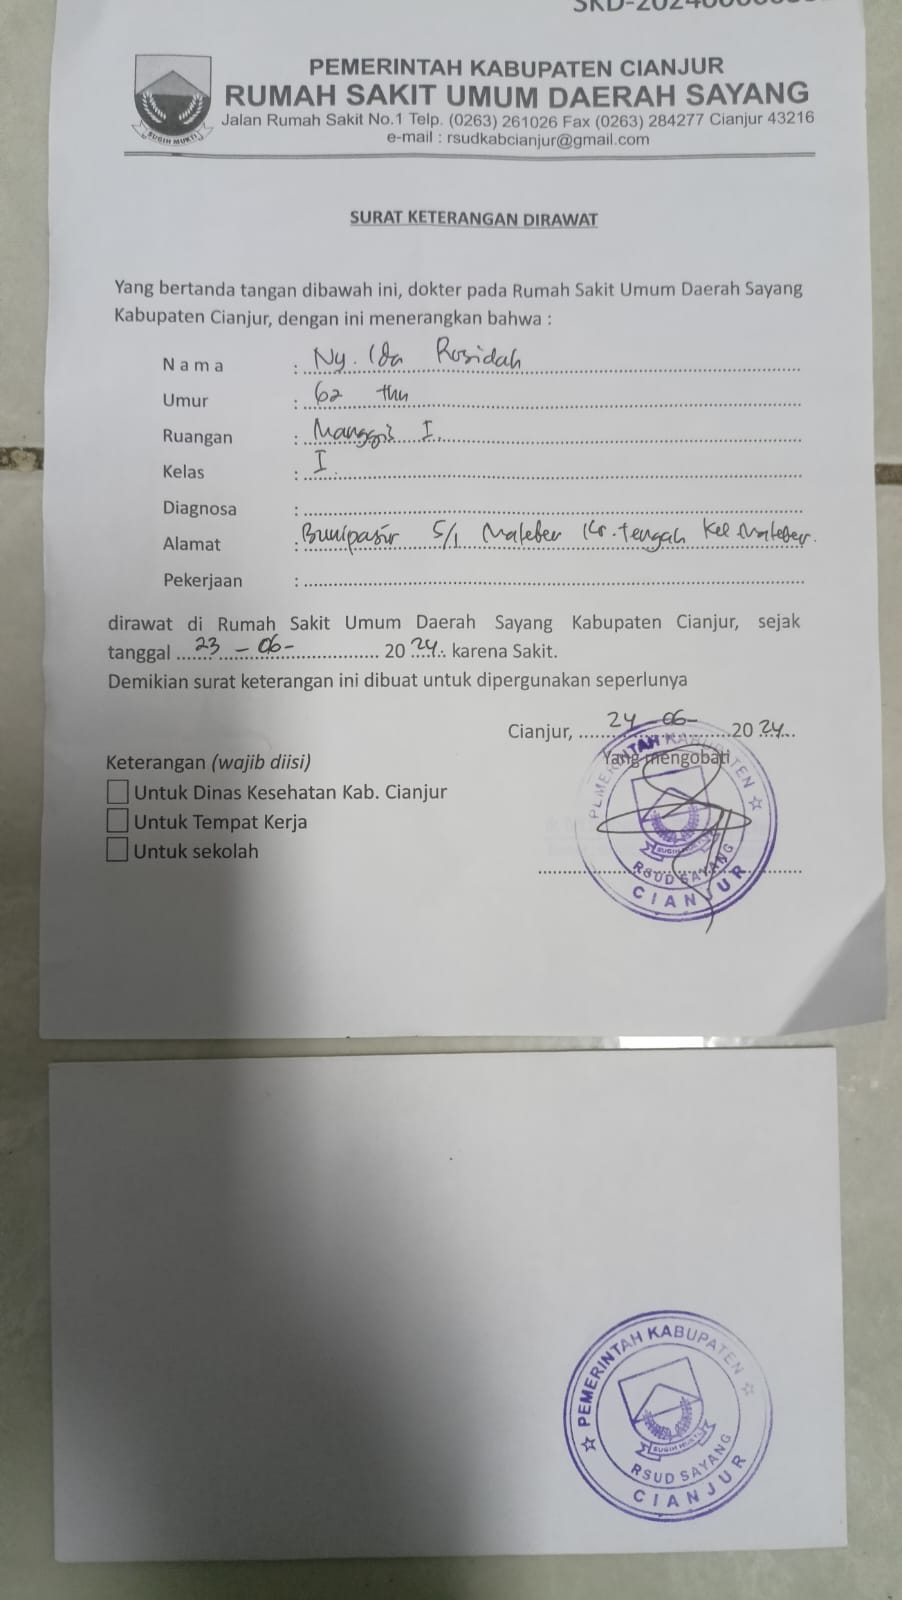 PEMERINTAH KABUPATEN CIANJUR
RUMAH SAKIT UMUM DAERAH SAYANG
Jalan Rumah Sakit No.1 Telp. (0263) 261026 Fax (0263) 284277 Cianjur 43216
e-mail : rsudkabcianjur@gmail.com
SUGIH MUKTI
SURAT KETERANGAN DIRAWAT
Yang bertanda tangan dibawah ini, dokter pada Rumah Sakit Umum Daerah Sayang
Kabupaten Cianjur, dengan ini menerangkan bahwa :
N a m a : Ny. Ida Rosidah
Umur : 62 thn
Ruangan : Manggis I
Kelas : I
Diagnosa :
Alamat : Bumipasir 5/1 Maleber Kr. tengah Kel Maleber.
Pekerjaan :
dirawat di Rumah Sakit Umum Daerah Sayang Kabupaten Cianjur, sejak
tanggal 23 - 06 - 2024. karena Sakit.
Demikian surat keterangan ini dibuat untuk dipergunakan seperlunya
Cianjur, 24 - 06 - 2024
Keterangan (wajib diisi)
Yang mengobati
Untuk Dinas Kesehatan Kab. Cianjur
Untuk Tempat Kerja
Untuk sekolah
PEMERINTAH KABUPATEN
SUGIH MUKTI
RSUD SAYANG
CIANJUR
PEMERINTAH KABUPATEN
SUGIH MUKTI
RSUD SAYANG
CIANJUR